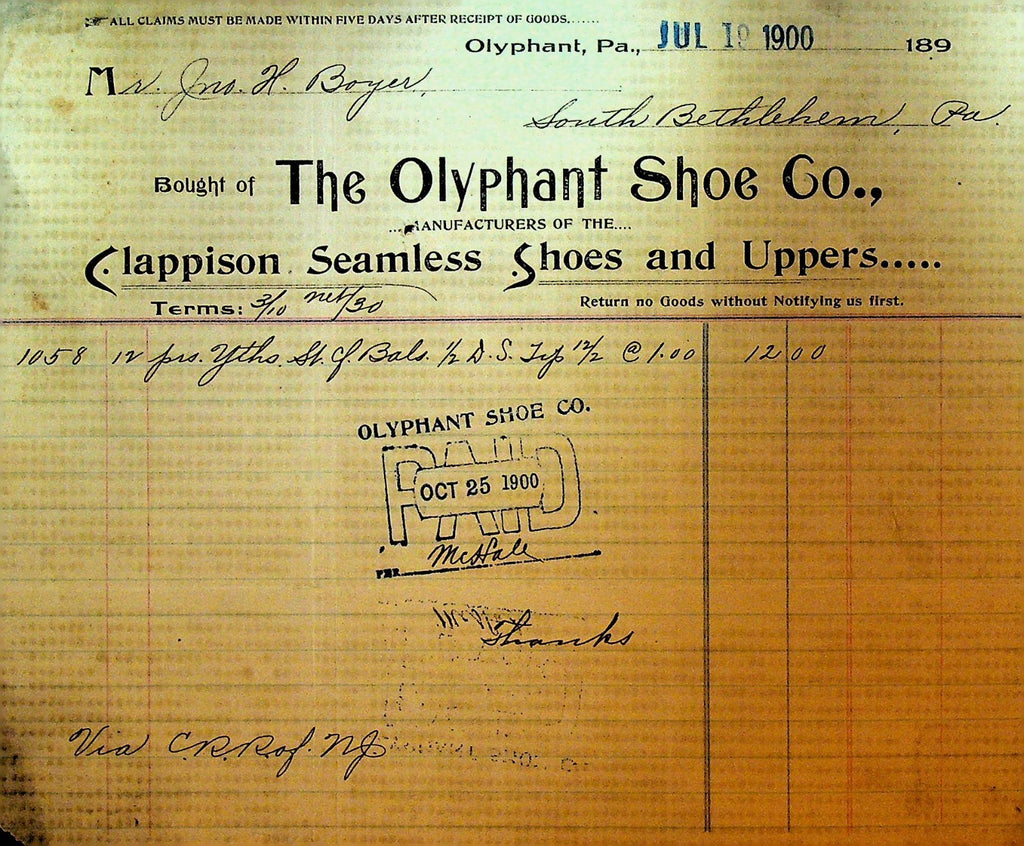 ALL CLAIMS MUST BE MADE WITHIN FIVE DAYS AFTER RECEIPT OF GOODS.......
Olyphant, Pa., JUL 19 1900 189
Mr. Jno. H. Boyer,
South Bethlehem, Pa.
Bought of The Olyphant Shoe Co.,
...MANUFACTURERS OF THE....
Clappison Seamless Shoes and Uppers.....
Terms: 3/10 net/30 Return no Goods without Notifying us first.
1058 12 prs. Yths. St. Cf Bals. 1/2 D. S. Tip 12/2 @ 1.00 12 00
OLYPHANT SHOE CO.
PAID
OCT 25 1900
PER McHale
Thanks
Via C.R.R of. NJ